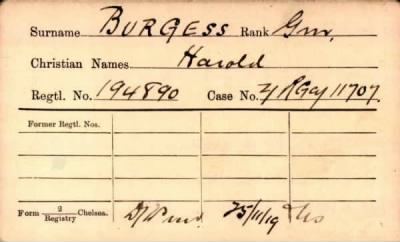 Surname BURGESS Rank Gnr.
Christian Names Harold
Regtl. No. 194890 Case No. 4/RGa/11707.
Former Regtl. Nos.
Form 2/Registry Chelsea. 25/11/19